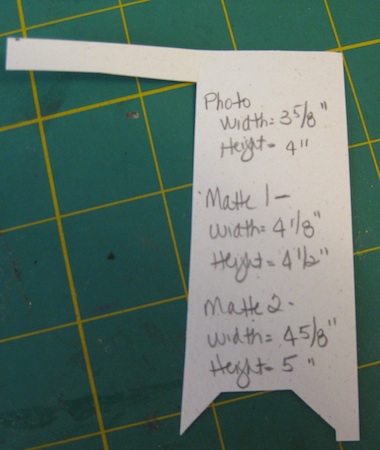 Photo
Width= 3 5/8"
Height= 4"
Matte 1-
Width= 4 1/8"
Height= 4 1/2"
Matte 2-
Width= 4 5/8"
Height= 5"